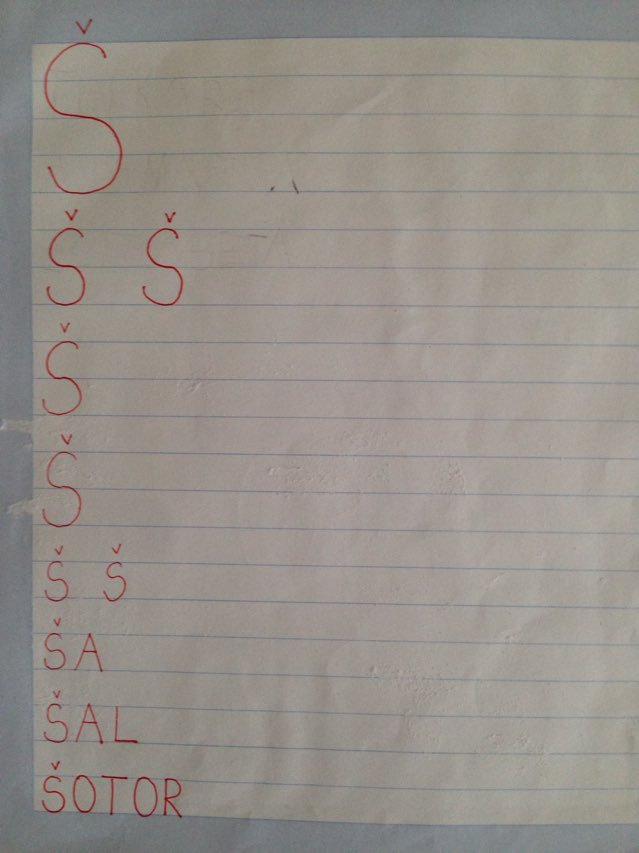 Š
Š Š
Š
Š
Š Š
ŠA
ŠAL
ŠOTOR